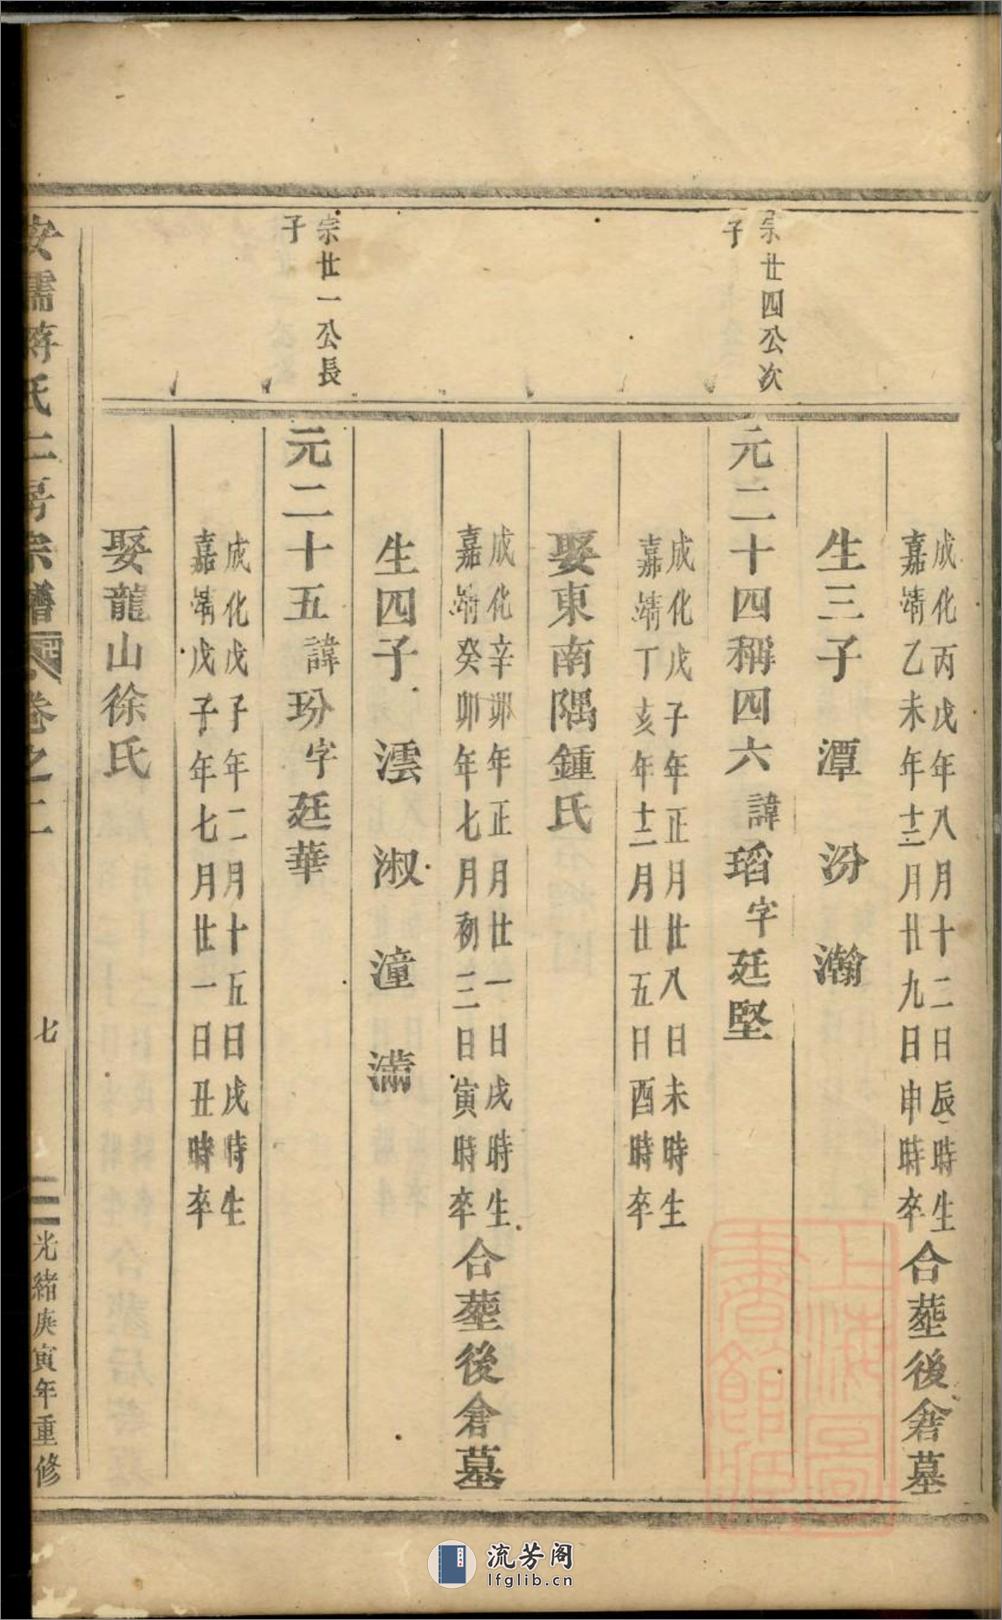 成化丙戌年八月十二日辰時生
嘉靖乙未年十二月廿九日申時卒
合塟後倉墓
生三子 潭 汾 瀚
宗廿四公次
子
元二十四稱四六諱瑫字廷堅
成化戊子年正月廿八日未時生
嘉靖丁亥年十二月廿五日酉時卒
娶東南隅鍾氏
成化辛卯年正月廿一日戌時生
嘉靖癸卯年七月初三日寅時卒
合塟後倉墓
生四子 澐 淑 潼 滿
宗廿一公長
子
元二十五諱玢字廷華
成化戊子年二月十五日戌時生
嘉靖戊子年七月廿一日丑時卒
娶龍山徐氏
安 蔣氏二房宗譜 卷之二 七 光緒庚寅年重修
上海圖書館藏
流芳阁
lfglib.cn